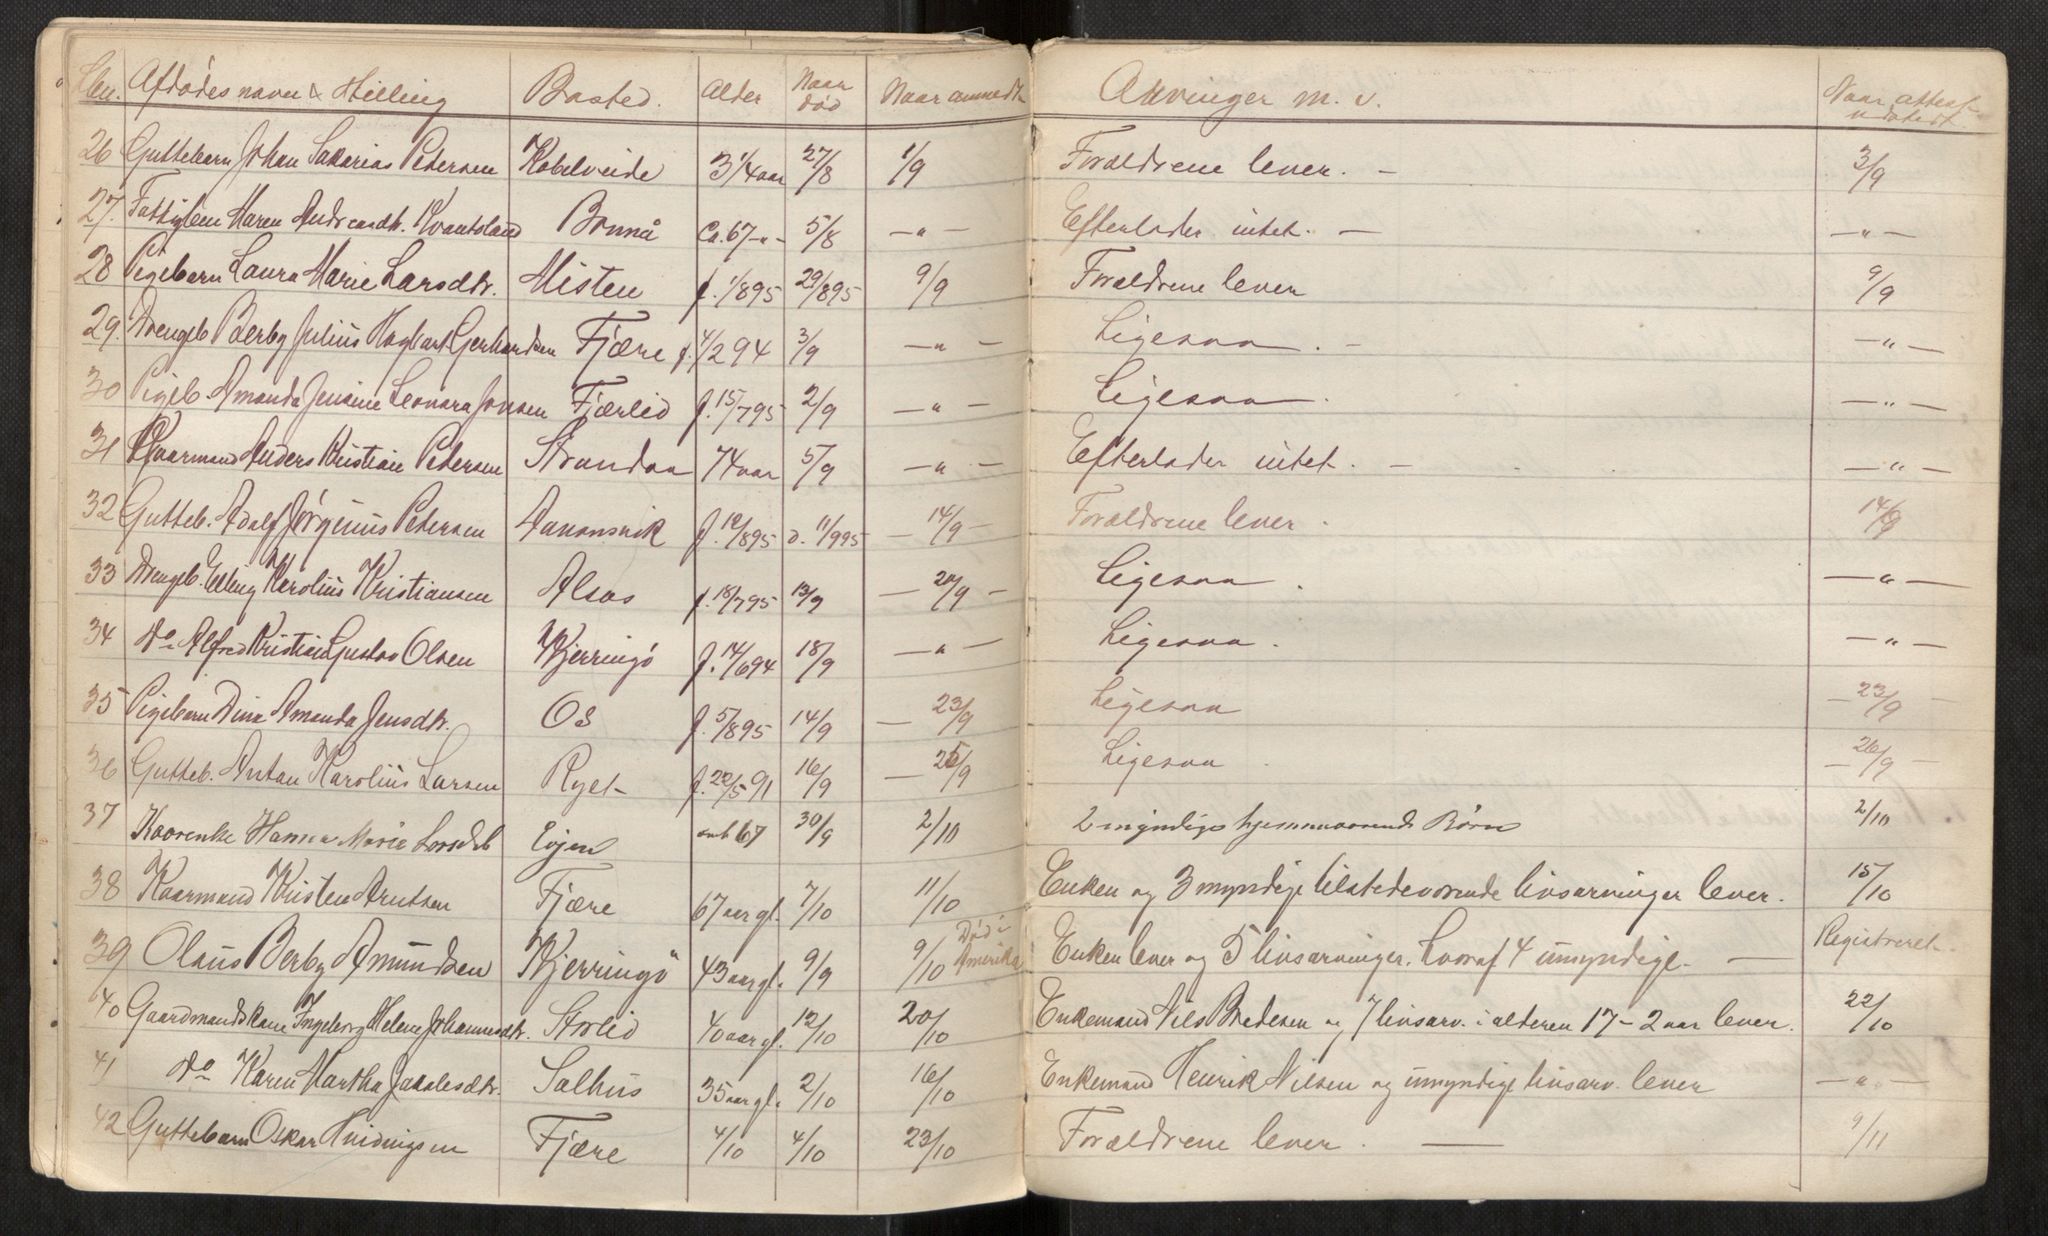 Lben. Afdødes navn & Stilling Bosted. Alder Naar død Naar anmeldt Arvinger m. v. Naar attest udstedt.
26 Guttebarn Johan Sakarias Petersen Kabelveide 3 1/4 aar 27/8 1/9 Forældrene lever. - 3/9
27. Fattiglem Maren Andreasdtr. Bonnå Ca. 67 -"- 5/8 -"- Efterlader intet. - -"-
28 Pigebarn Laura Marie Larsdtr. Misten f. 1/895 29/895 9/9 Forældrene lever 9/9
29. Drengeb. Berby Julius Hagbart Gerhardsen Fjære f. 4/294 3/9 -"- Ligesaa. - -"-
30 Pigeb. Amanda Jensine Leonara Jonsen Fjærlid f. 15/795 2/9 -"- Ligesaa. -"-
31 Kaarmand Anders Kristian Petersen Strandaa 74 aar 5/9 -"- Efterlader intet. - -"-
32 Gutteb. Adolf Jørginus Petersen f. 12/895 d. 11/995 - 14/9 - Forældrene lever. 14/9
33 Drengeb. Elling Karolius Kristiansen Alsos f. 18/795 13/9 - 20/9 - Ligesaa. -"-
34 Do. Alfred Kristian Gustav Olsen Kjerringø f. 14/694 18/9 -"- Ligesaa. -"-
35 Pigebarn Dina Amanda Jensdtr. Os f. 5/895 14/9 - 23/9 Ligesaa - 23/9 -
36 Gutteb. Antan Karolius Larsen Ryet f. 22/591 16/9 - 25/9 Ligesaa. - 26/9 -
37 Kaarenke Hanna Marie Larsdtr Evjen omb 67 30/9 2/10 2 myndige hjemmeværende Børn 2/10
38 Kaarmand Kristen Arntsen Fjære 67 aar gl. 7/10 11/10 Enken og 3 myndige tilstedeværende livsarvinger lever. 15/10
39 Olaus Berby Amundsen Kjerringö 43 aar gl. 9/9 9/10 Död i Amerika Enken lever og 5 livsarvinger, hvoraf 4 umyndige. - Registreret.
40 Gaardmandskone Ingeborg Helene Johannesdtr. Storlid 40 aar gl. 12/10 20/10 Enkemand Nils Bredesen og 7 livsarv. i alderen 17-2 aar lever. 22/10
41 Do Karen Martha Jakobsdtr. Salhus 35 aar gl. 2/10 16/10 Enkemand Henrik Nilsen og umyndige livsarv. lever -"-
42 Guttebarn Oskar Hvidingsen Fjære 4/10 4/10 23/10 Forældrene lever. - 9/11